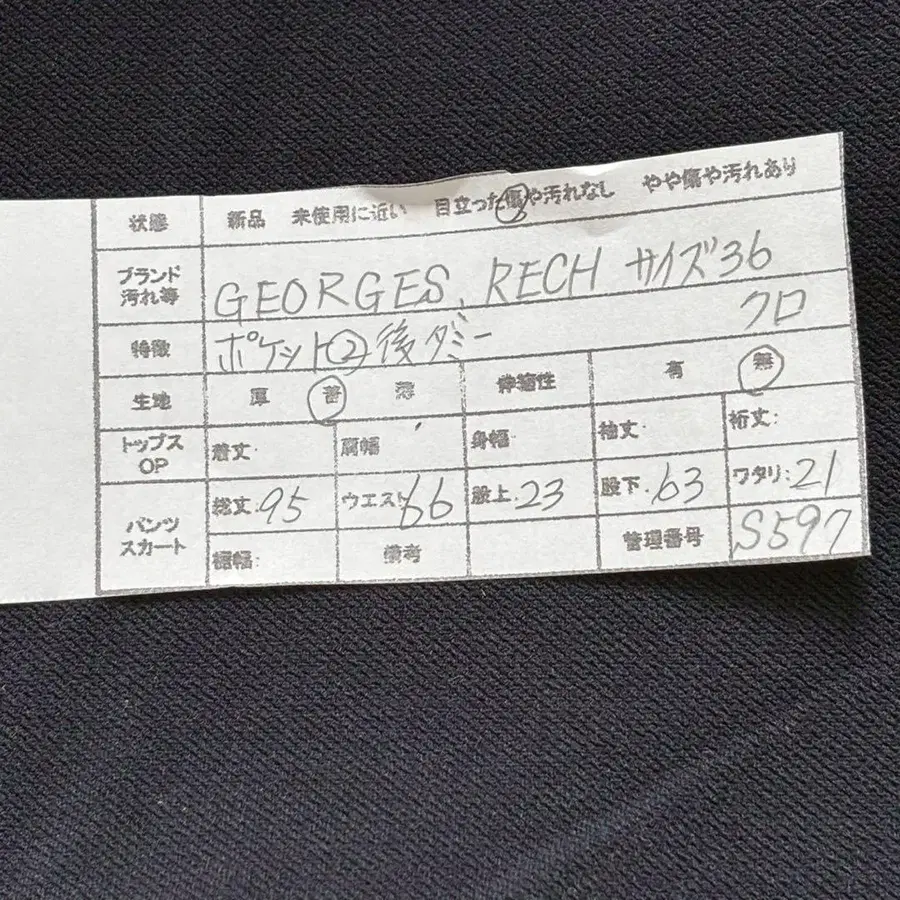 状態 新品 未使用に近い 目立った傷や汚れなし やや傷や汚れあり
ブランド 汚れ等 GEORGES, RECH サイズ36
特徴 ポケット② 後ダミー クロ
生地 厚 普 薄 伸縮性 有 無
トップス OP 着丈: 肩幅 身幅: 袖丈: 裄丈:
パンツ スカート 総丈:95 ウエスト 66 股上:23 股下:63 ワタリ:21
裾幅: 備考 管理番号 S597